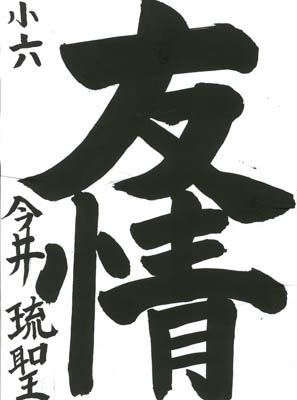 友情
小六
今井琉聖